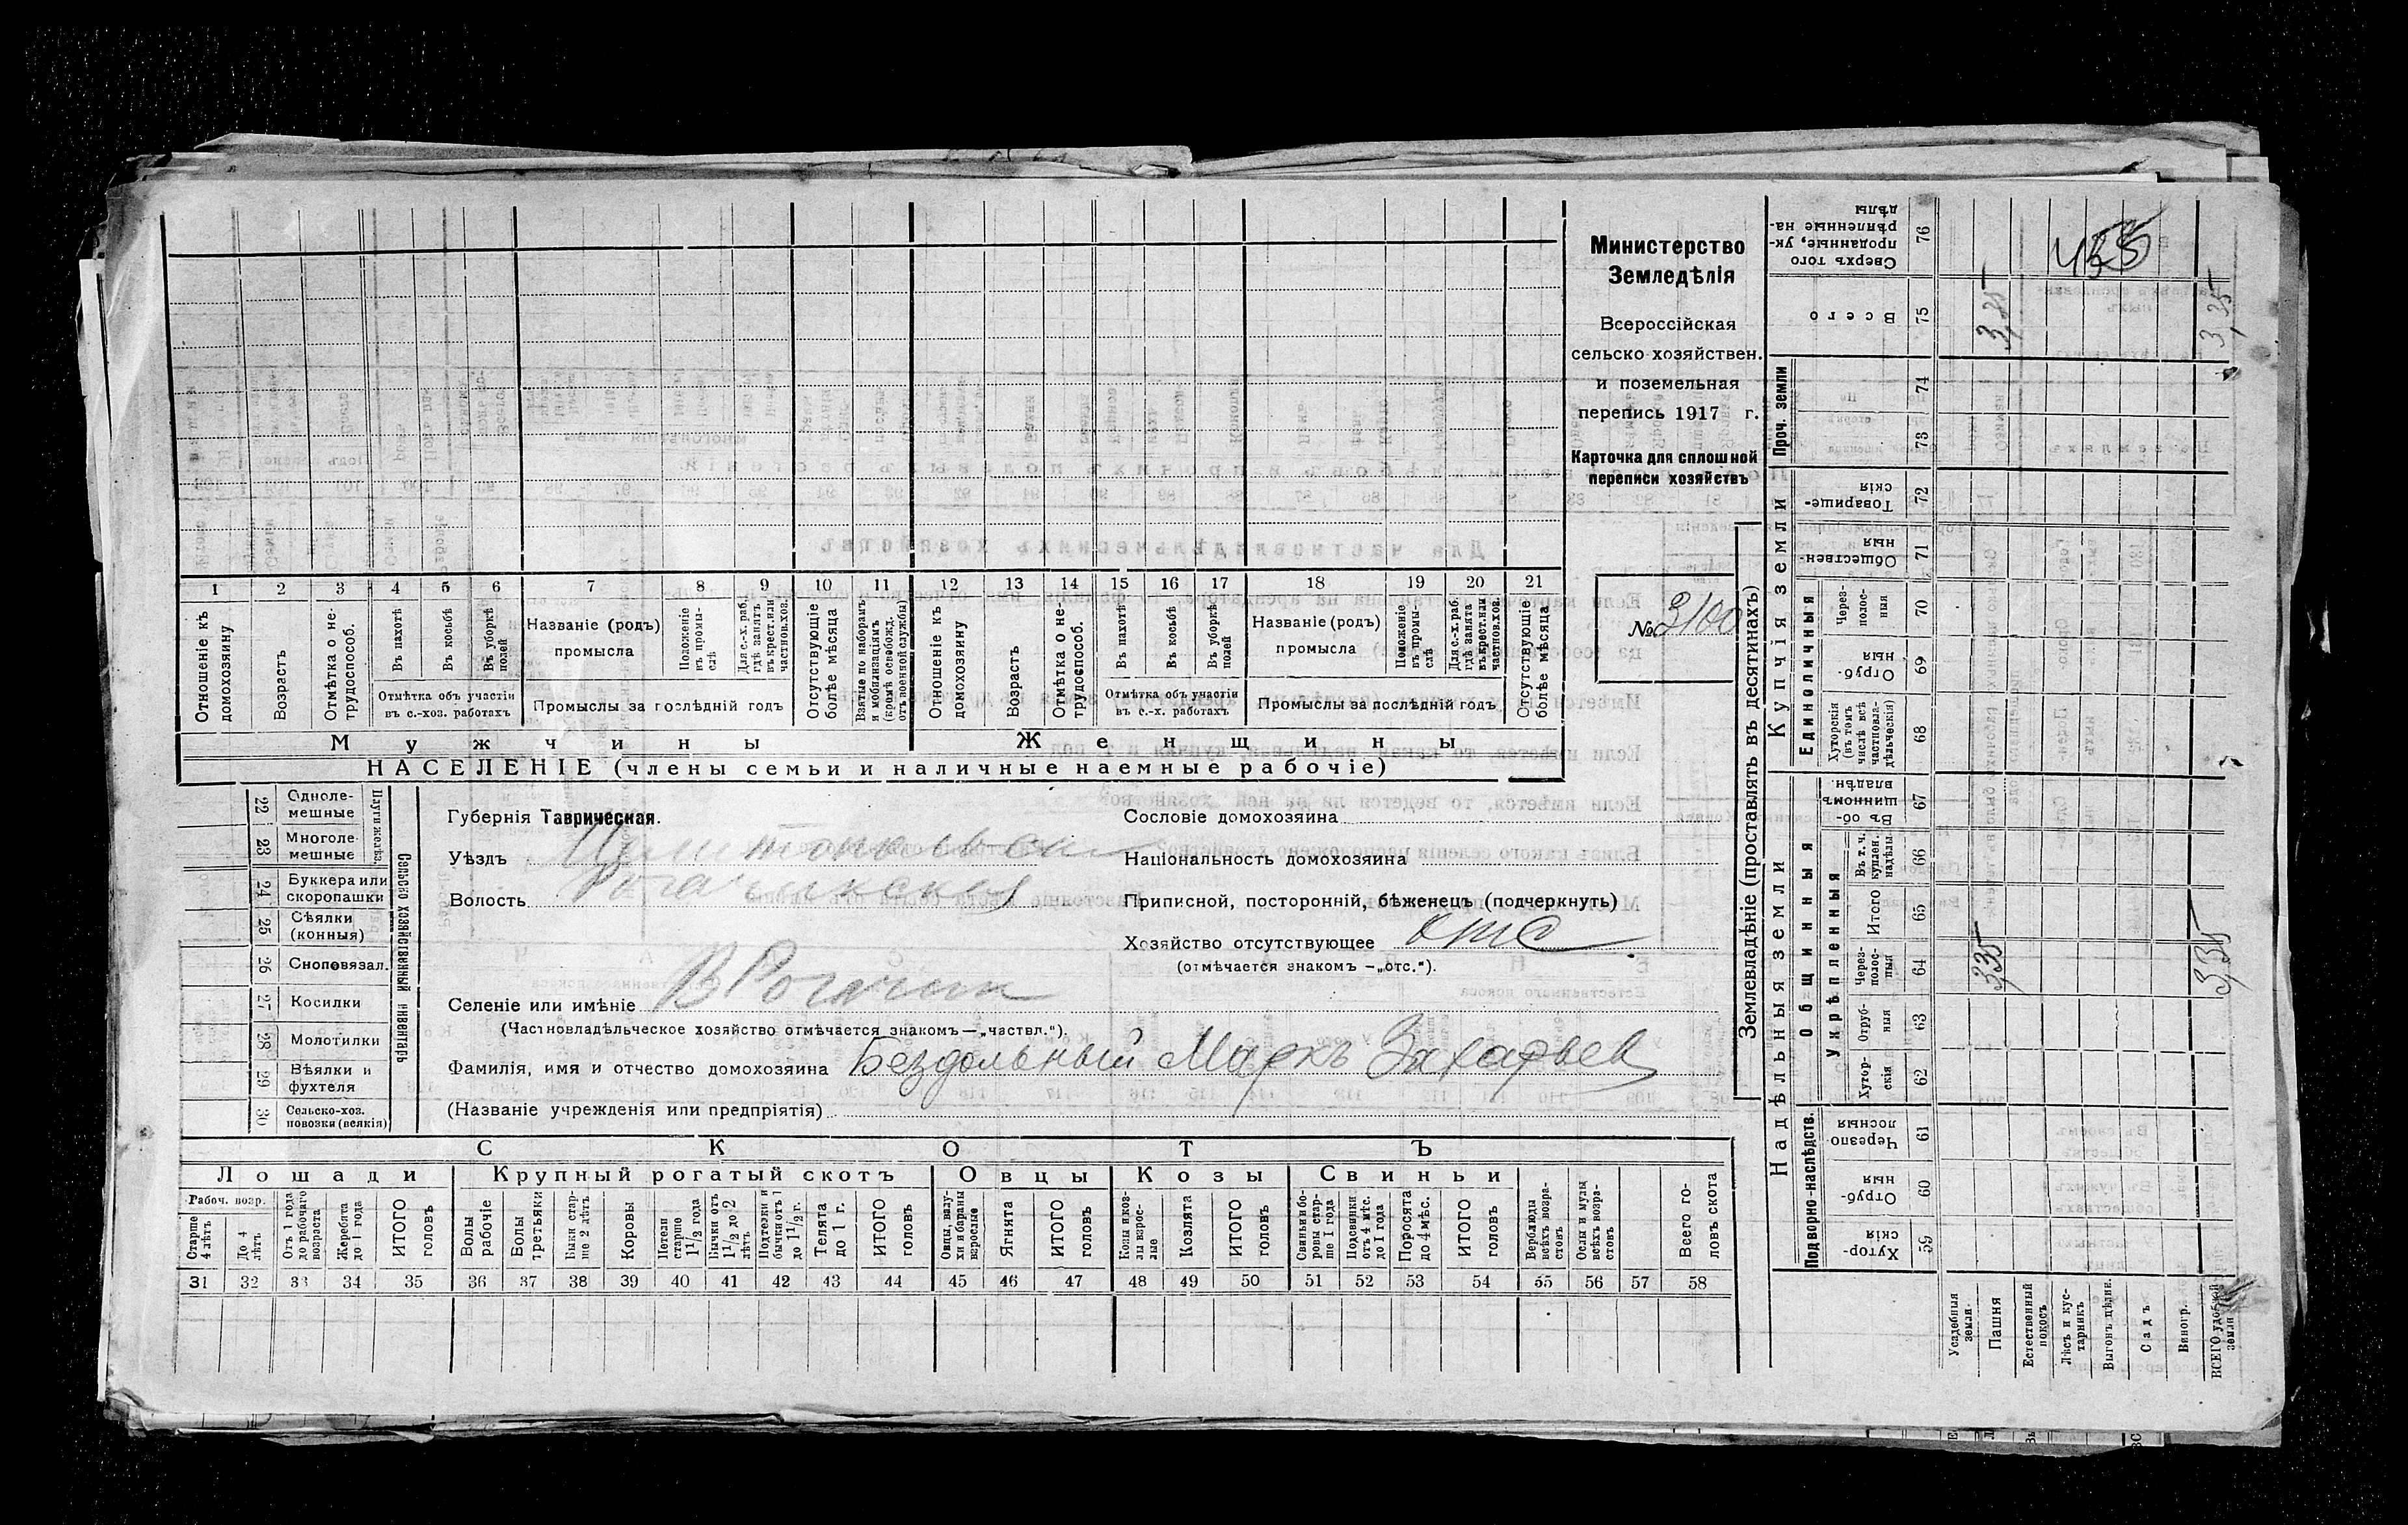 Министерство
Земледѣлія
Всероссійская
сельско-хозяйствен.
и поземельная
перепись 1917 г.
Карточка для сплошной
переписи хозяйствъ
№ 3100
1 2 3 4 5 6 7 8 9 10 11 12 13 14 15 16 17 18 19 20 21
Отношеніе къ домохозяину
Возрастъ
Отмѣтка о нетрудоспособ.
Въ пахотѣ
Въ косьбѣ
Въ уборкѣ полей
Отмѣтка объ участіи въ с.-хоз. работахъ
Названіе (родъ) промысла
Положеніе въ промыслѣ
Для с.-х. раб. гдѣ занятъ въ крест. или частнов. хоз.
Промыслы за послѣдній годъ
Отсутствующіе болѣе мѣсяца
Взятые по наборамъ и мобилизаціямъ (кромѣ освобожд. отъ военной службы)
Отношеніе къ домохозяину
Возрастъ
Отмѣтка о нетрудоспособ.
Въ пахотѣ
Въ косьбѣ
Въ уборкѣ полей
Отмѣтка объ участіи въ с.-х. работахъ
Названіе (родъ) промысла
Положеніе въ промыслѣ
Для с.-х. раб. гдѣ занята въ крест. или частнов. хоз.
Промыслы за послѣдній годъ
Отсутствующіе болѣе мѣсяца
Мужчины
Женщины
НАСЕЛЕНІЕ (члены семьи и наличные наемные рабочіе)
Сельско хозяйственный инвентарь
22 Однолемешные
23 Многолемешные
24 Буккера или скоропашки
25 Сѣялки (конныя)
26 Сноповязал.
27 Косилки
28 Молотилки
29 Вѣялки и фухтеля
30 Сельско-хоз. повозки (всякія)
Губернія Таврическая.
Уѣздъ
Волость Рогачикская
Селеніе или имѣніе В Рогачик
(Частновладѣльческое хозяйство отмѣчается знакомъ — „частвл.“).
Фамилія, имя и отчество домохозяина Бездольный Маркъ Захарьев
(Названіе учрежденія или предпріятія)
Сословіе домохозяина
Національность домохозяина
Приписной, посторонній, бѣженецъ (подчеркнуть)
Хозяйство отсутствующее отс
(отмѣчается знакомъ — „отс.“).
СКОТЪ
Лошади
Крупный рогатый скотъ
Овцы
Козы
Свиньи
Рабоч. возр.
Старше 4 лѣтъ
До 4 лѣтъ
Отъ 1 года до рабочаго возраста
Жеребята до 1 года
ИТОГО головъ
Волы рабочіе
Волы третьяки
Быки старше 2 лѣтъ
Коровы
Нетели старше 1 1/2 года
Бычки отъ 1 1/2 до 2 лѣтъ
Подтелки и бычки отъ 1 до 1 1/2 г.
Телята до 1 г.
ИТОГО головъ
Овцы, валухи и бараны взрослые
Ягнята
ИТОГО головъ
Козы и козлы взрослые
Козлята
ИТОГО головъ
Свиньи и боровы старше 1 года
Подсвинки отъ 4 мѣс. до 1 года
Поросята до 4 мѣс.
ИТОГО головъ
Верблюды всѣхъ возрастовъ
Ослы и мулы всѣхъ возрастовъ
Всего головъ скота
31 32 33 34 35 36 37 38 39 40 41 42 43 44 45 46 47 48 49 50 51 52 53 54 55 56 57 58
Землевладѣніе (проставлять въ десятинахъ)
Надѣльныя земли
Купчія земли
Проч. земли
Подворно-наслѣдств.
Общинныя
Укрѣпленныя
Единоличныя
Сверхъ того проданные, укрѣпленные надѣлы 76
Всего 75 3,35 3,35
74
73
Товарищескія 72
Общественныя 71
Чрезполосныя 70
Отрубныя 69
Хуторскія (въ томъ числѣ всѣ частновладѣльческія) 68
Въ общинномъ владѣн. 67
Въ т. ч. куплен. надѣлы 66
Итого 65
Чрезполосныя 64 3,35 3,35
Отрубныя 63
Хуторскія 62
Черезполосныя 61
Отрубныя 60
Хуторскія 59
Усадебныя земля.
Пашня
Естественный покосъ
Лѣсъ и кустарникъ
Выгонъ цѣлин.
Садъ
Виногр.
ВСЕГО удобной земли